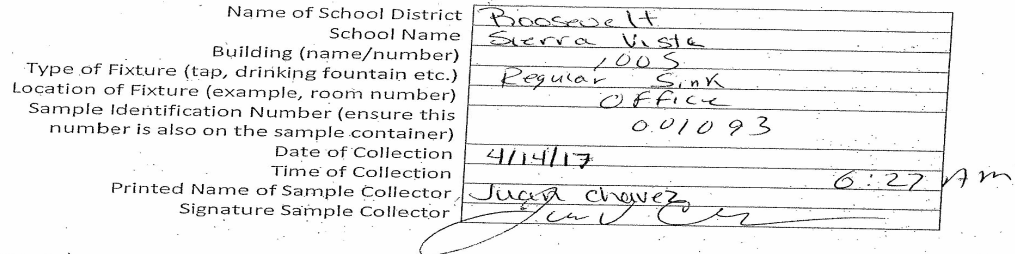 Name of School District Roosevelt
School Name Sierra Vista
Building (name/number) 100S
Type of Fixture (tap, drinking fountain etc.) Regular Sink
Location of Fixture (example, room number) Office
Sample Identification Number (ensure this
number is also on the sample container) 001093
Date of Collection 4/14/17
Time of Collection 6:27 AM
Printed Name of Sample Collector Juan Chavez
Signature Sample Collector